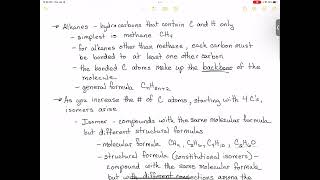 → Alkanes - hydrocarbons that contain C and H only
- simplest is methane CH4
- for alkanes other than methane, each carbon must
be bonded to at least one other carbon
- the bonded C atoms make up the backbone of the
molecule
- general formula CnH2n+2
→ As you increase the # of C atoms, starting with 4 C's,
isomers arise
- Isomer - compounds with the same molecular formula
but different structural formulas
- molecular formula CH4, C2H6,
- structural formula (constitutional isomers) -
compound with the same molecular formula
but with different connections among the